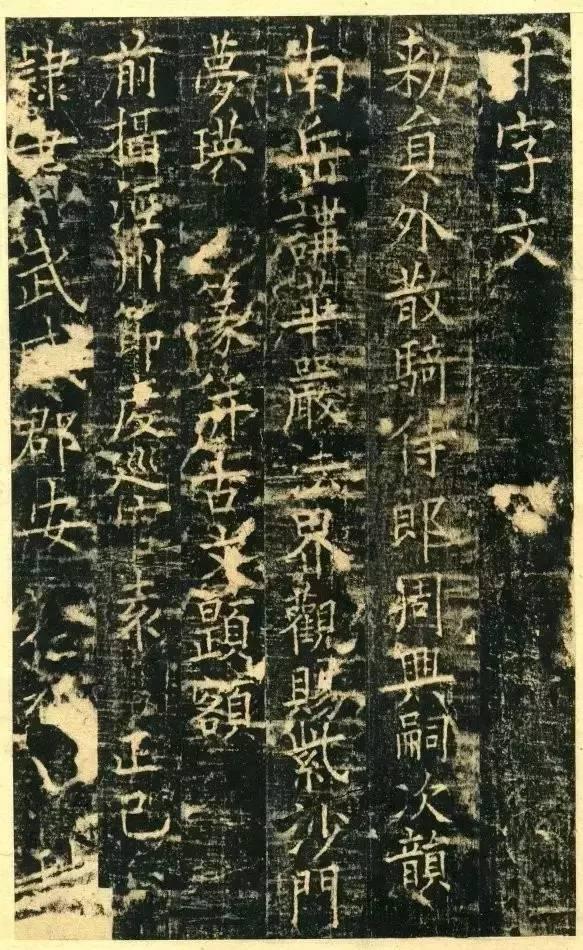 千字文
勑員外散騎侍郎周興嗣次韻
南岳講華嚴法界觀賜紫沙門
夢瑛篆并古文題額
前攝涇州節度巡官袁正己
隸書武威郡安刊